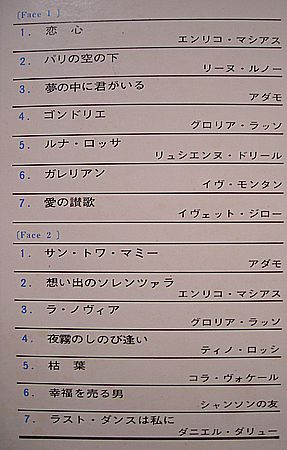 [Face 1]
1. 恋 心
エンリコ・マシアス
2. パリの空の下
リーヌ・ルノー
3. 夢の中に君がいる
アダモ
4. ゴンドリエ
グロリア・ラッソ
5. ルナ・ロッサ
リュシエンヌ・ドリール
6. ガレリアン
イヴ・モンタン
7. 愛の讃歌
イヴェット・ジロー
[Face 2]
1. サン・トワ・マミー
アダモ
2. 想い出のソレンツァラ
エンリコ・マシアス
3. ラ・ノヴィア
グロリア・ラッソ
4. 夜霧のしのび逢い
ティノ・ロッシ
5. 枯 葉
コラ・ヴォケール
6. 幸福を売る男
シャンソンの友
7. ラスト・ダンスは私に
ダニエル・ダリュー